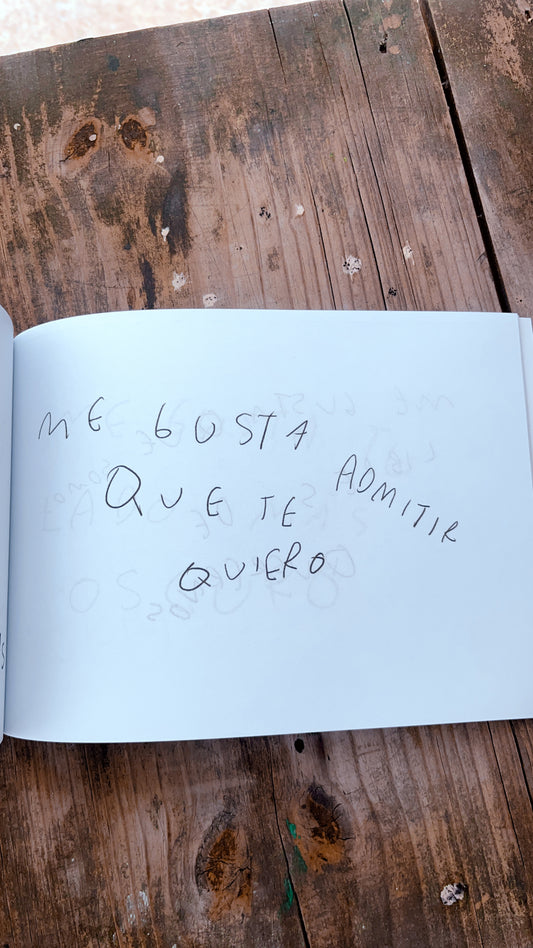 ME GUSTA
ADMITIR
QUE TE
QUIERO